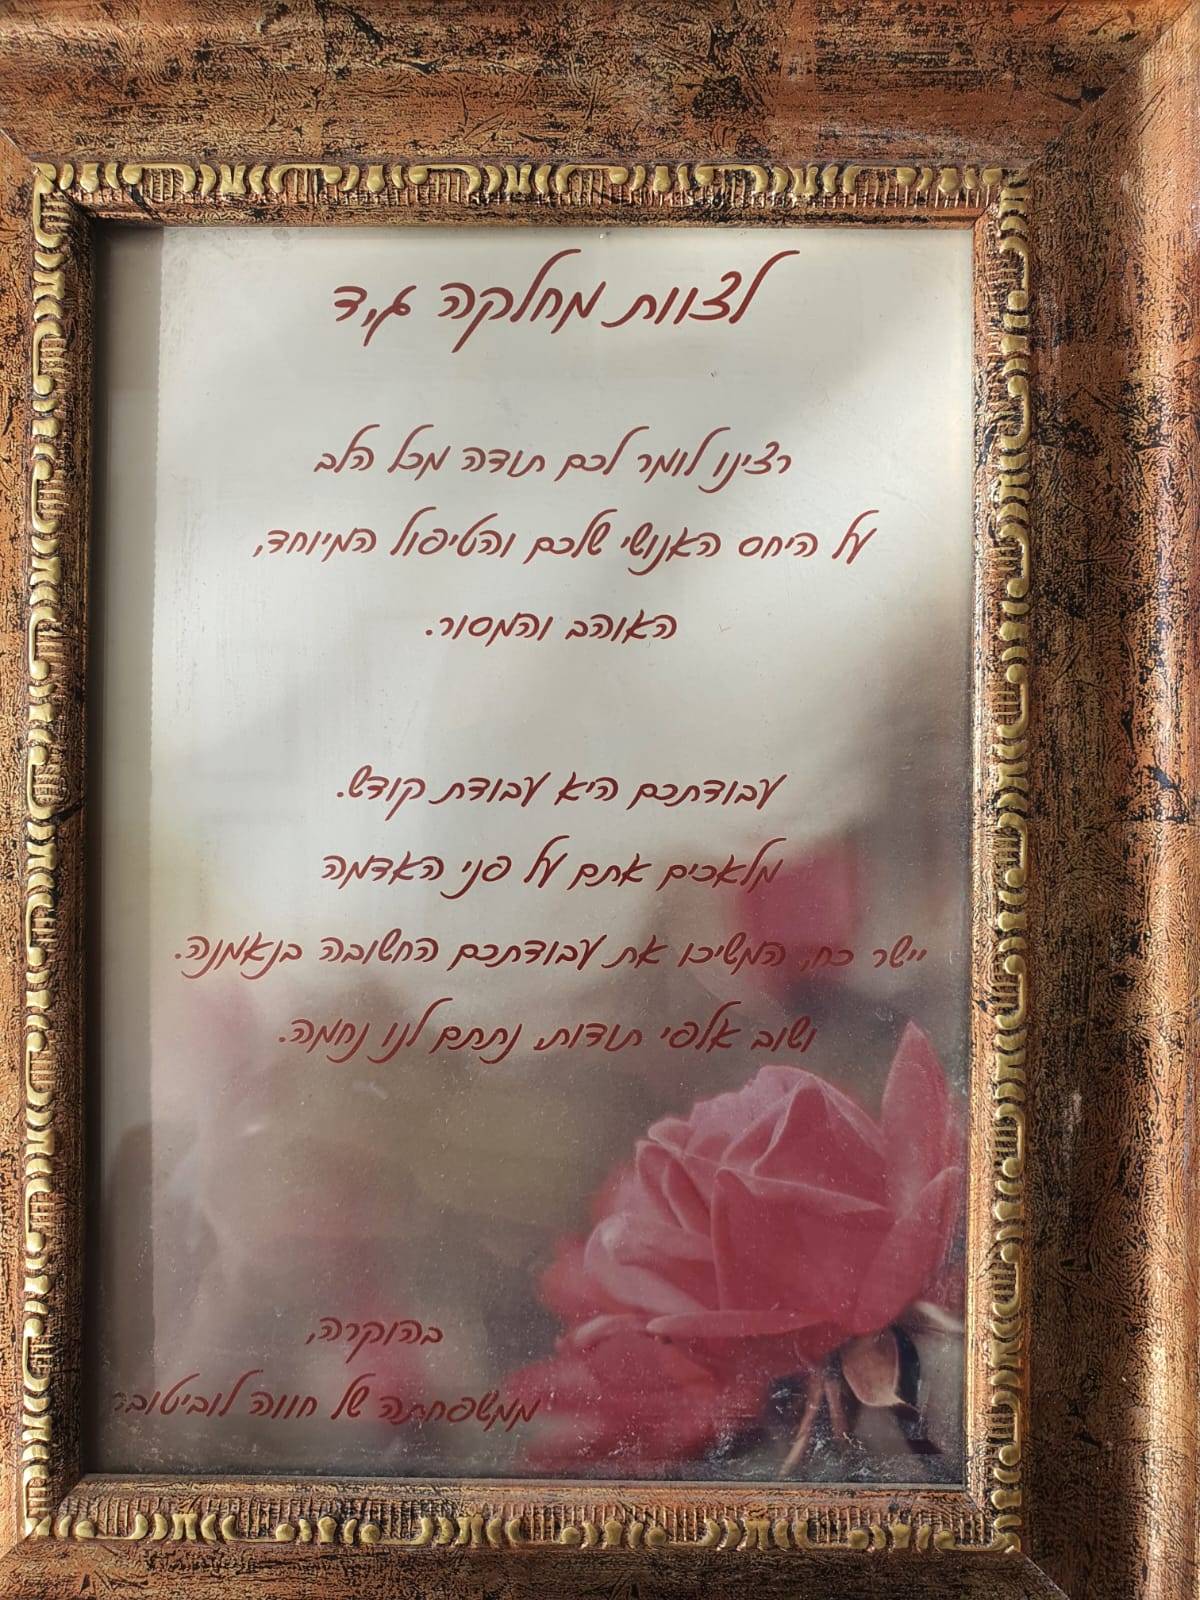 לצוות מחלקה ג,ד
רצינו לומר לכם תודה מכל הלב
על היחס האנושי שלכם והטיפול המיוחד,
האוהב והמסור.
עבודתכם היא עבודת קודש.
מלאכים אתם על פני האדמה
יישר כח, המשיכו את עבודתכם החשובה בנאמנה.
ושוב אלפי תודות, נתתם לנו נחמה.
בהוקרה,
ממשפחתה של חווה לוביטובר